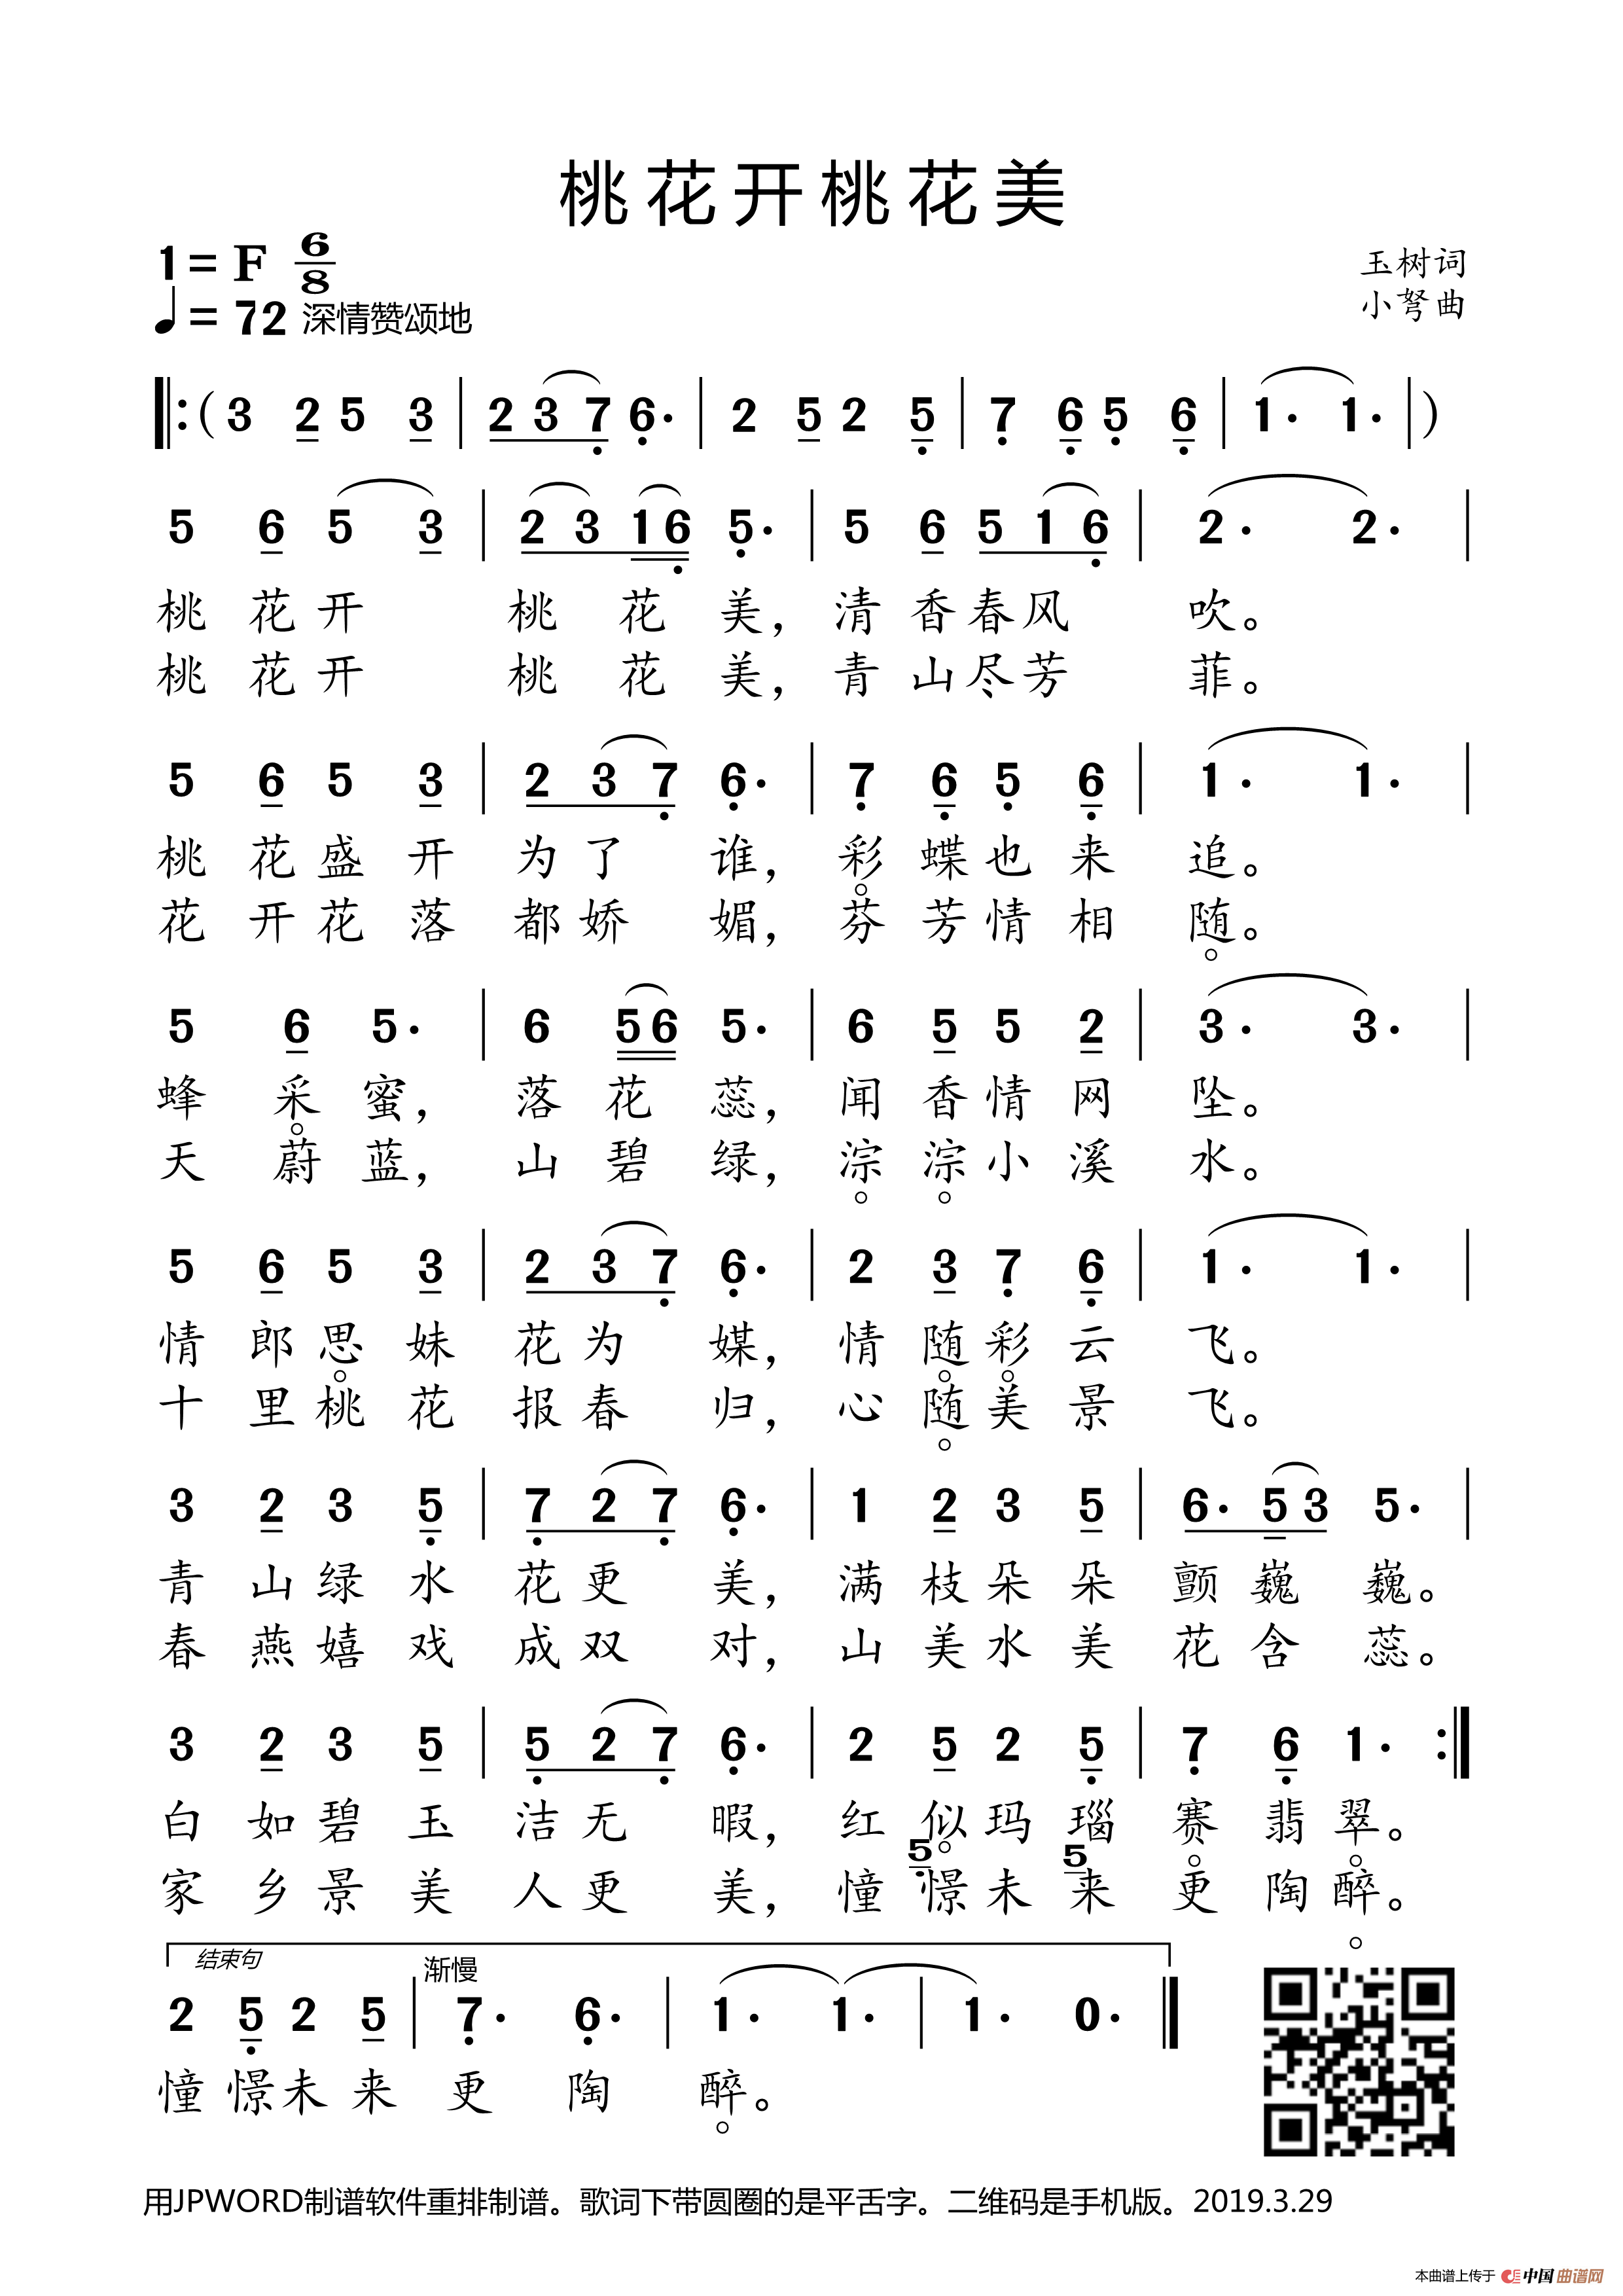 桃花开桃花美
1 = F 6/8
玉树词
♩ = 72 深情赞颂地
小弩曲
‖: ( 3 2 5 3 | 2 3 7 6· | 2 5 2 5 | 7 6 5 6 | 1· 1· | )
5 6 5 3 | 2 3 1 6 5· | 5 6 5 1 6 | 2· 2· |
桃 花 开 桃 花 美, 清 香 春 风 吹。
桃 花 开 桃 花 美, 青 山 尽 芳 菲。
5 6 5 3 | 2 3 7 6· | 7 6 5 6 | 1· 1· |
桃 花 盛 开 为 了 谁, 彩 蝶 也 来 追。
花 开 花 落 都 娇 媚, 芬 芳 情 相 随。
5 6 5· | 6 5 6 5· | 6 5 5 2 | 3· 3· |
蜂 采 蜜, 落 花 蕊, 闻 香 情 网 坠。
天 蔚 蓝, 山 碧 绿, 淙 淙 小 溪 水。
5 6 5 3 | 2 3 7 6· | 2 3 7 6 | 1· 1· |
情 郎 思 妹 花 为 媒, 情 随 彩 云 飞。
十 里 桃 花 报 春 归, 心 随 美 景 飞。
3 2 3 5 | 7 2 7 6· | 1 2 3 5 | 6· 5 3 5· |
青 山 绿 水 花 更 美, 满 枝 朵 朵 颤 巍 巍。
春 燕 嬉 戏 成 双 对, 山 美 水 美 花 含 蕊。
3 2 3 5 | 5 2 7 6· | 2 5 2 5 | 7 6 1· :‖
白 如 碧 玉 洁 无 暇, 红 似 玛 瑙 赛 翡 翠。
5 5
家 乡 景 美 人 更 美, 憧 憬 未 来 更 陶 醉。
结束句 渐慢
2 5 2 5 | 7· 6· | 1· 1· | 1· 0· ‖
憧 憬 未 来 更 陶 醉。
用JPWORD制谱软件重排制谱。歌词下带圆圈的是平舌字。二维码是手机版。2019.3.29
本曲谱上传于 中国曲谱网